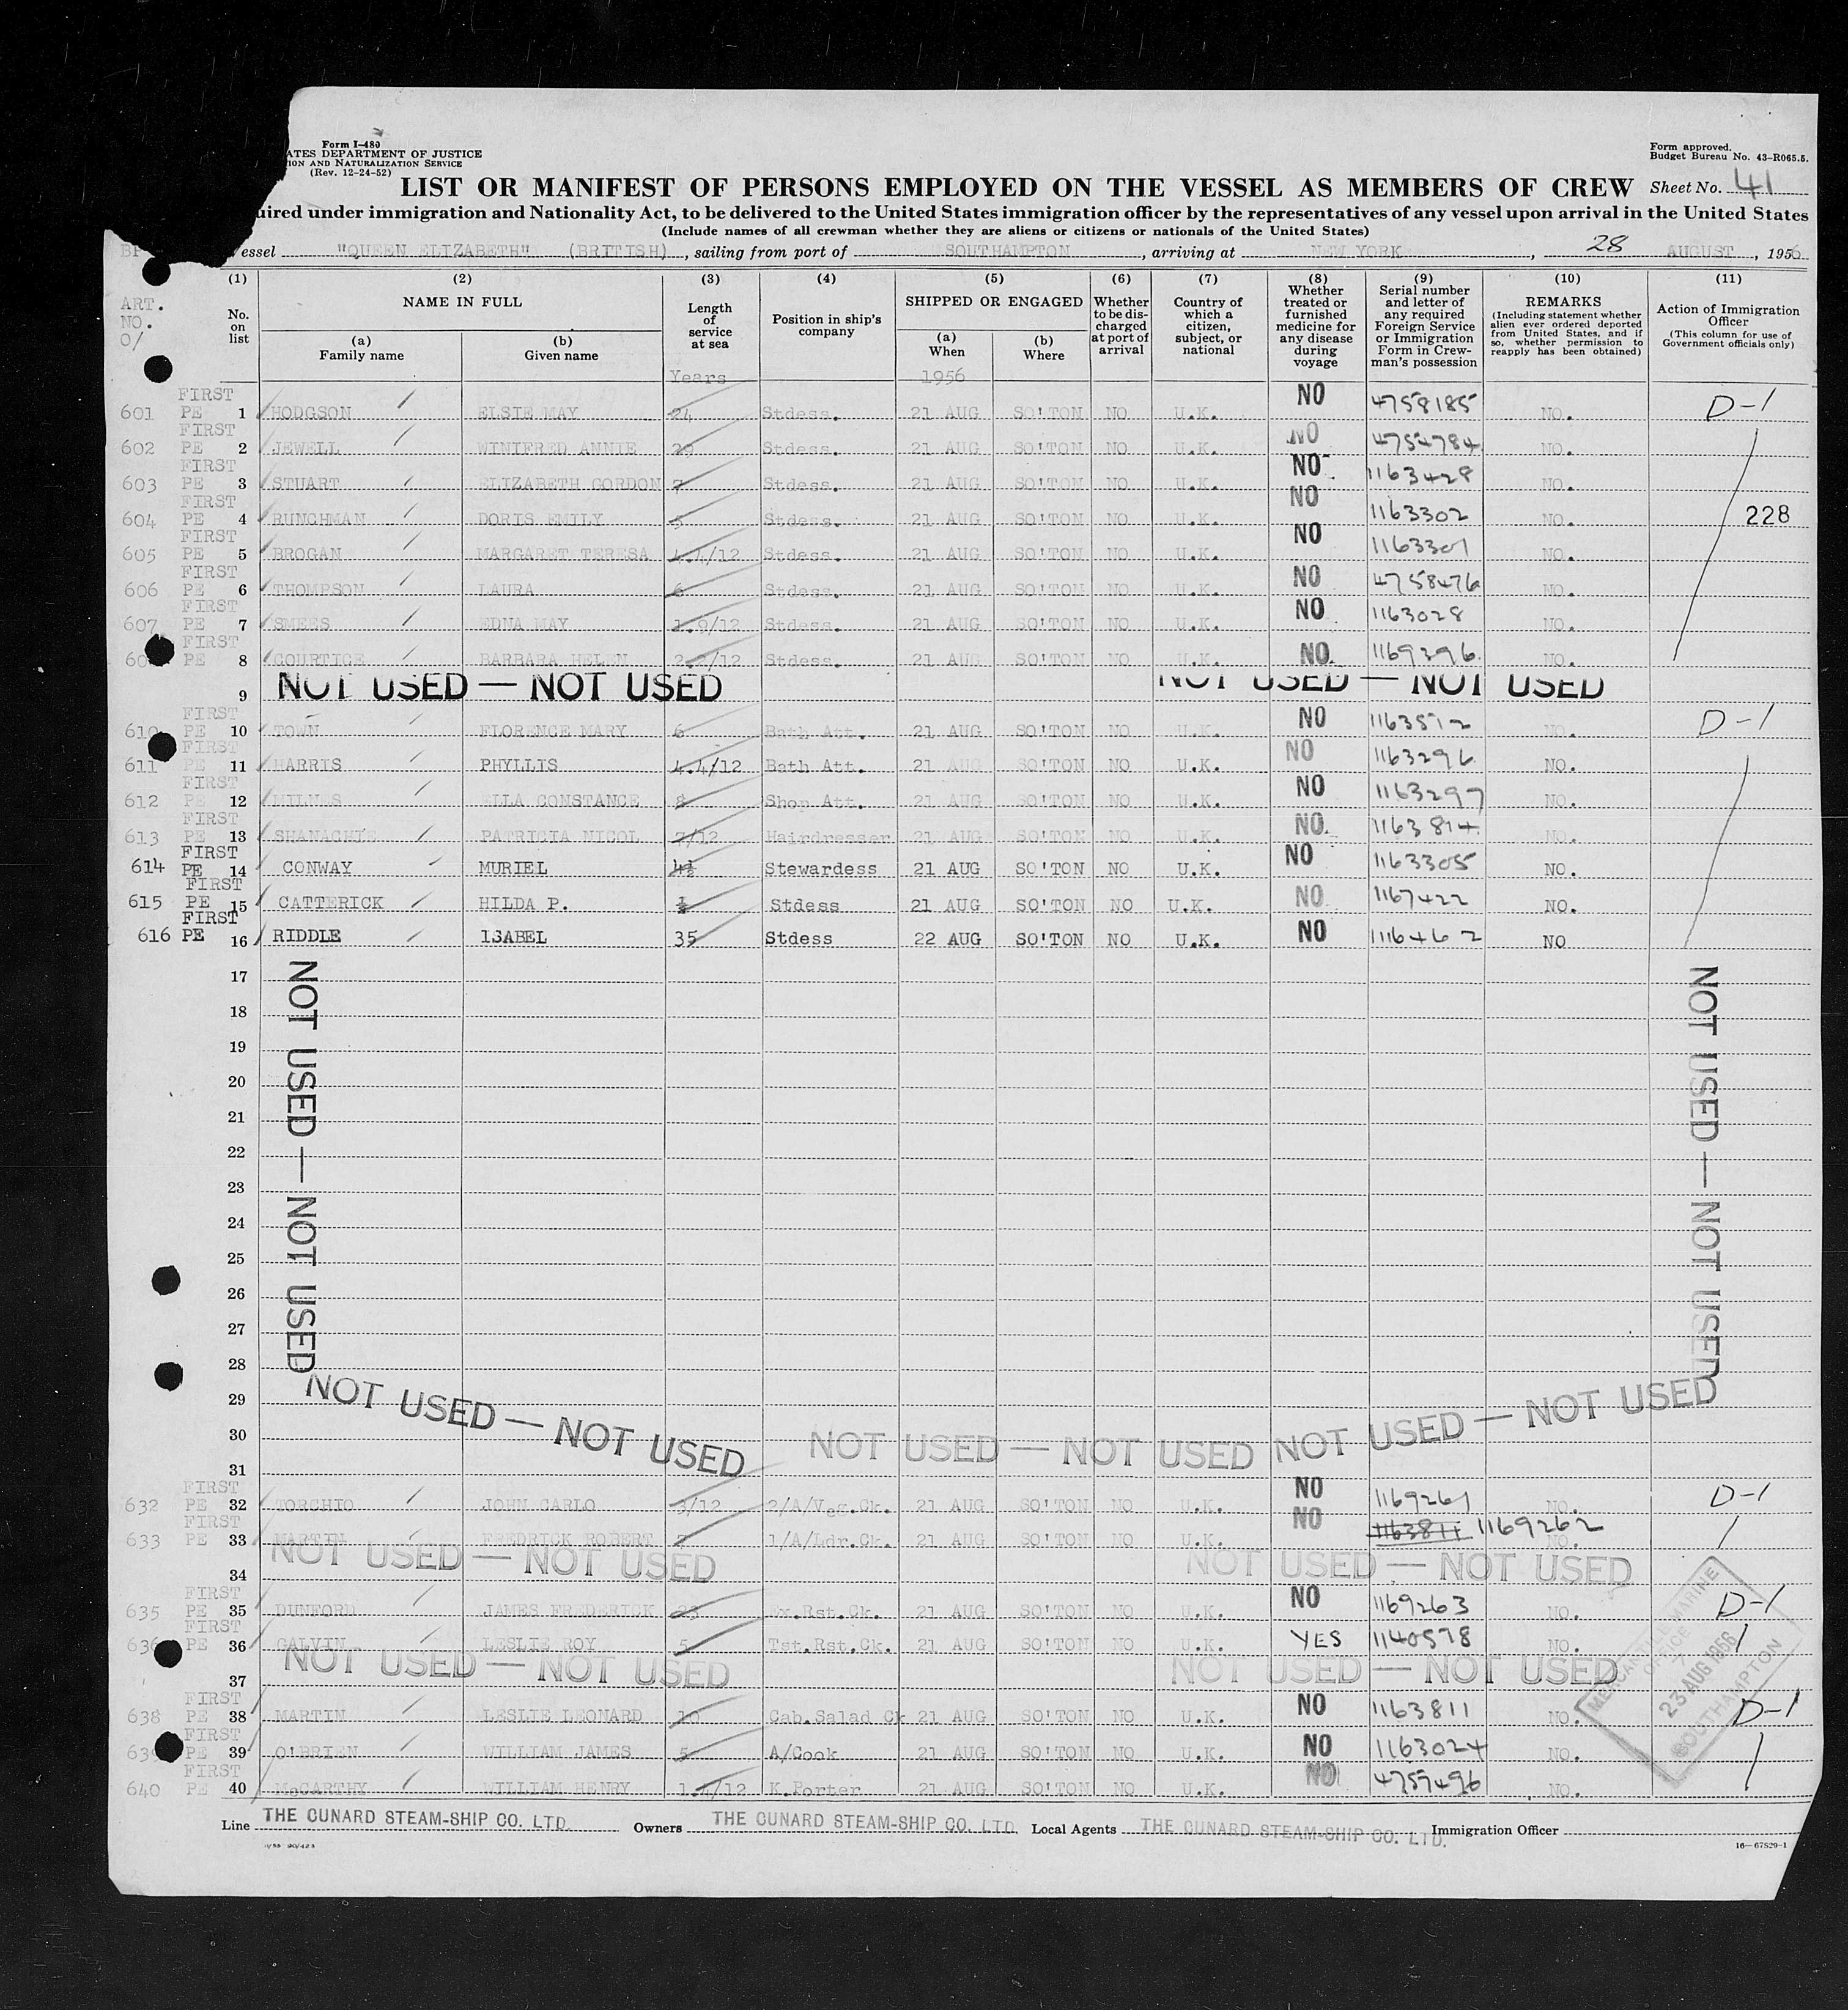 Form I-480
ATES DEPARTMENT OF JUSTICE
ION AND NATURALIZATION SERVICE
(Rev. 12-24-52)
Form approved.
Budget Bureau No. 43-R065.5.
LIST OR MANIFEST OF PERSONS EMPLOYED ON THE VESSEL AS MEMBERS OF CREW Sheet No. 41
uired under immigration and Nationality Act, to be delivered to the United States immigration officer by the representatives of any vessel upon arrival in the United States
(Include names of all crewman whether they are aliens or citizens or nationals of the United States)
essel "QUEEN ELIZABETH" (BRITISH), sailing from port of SOUTHAMPTON, arriving at NEW YORK, 28 AUGUST, 1956
ART. NO. O/
(1) (2) (3) (4) (5) (6) (7) (8) (9) (10) (11)
No. on list
NAME IN FULL
(a) Family name
(b) Given name
Length of service at sea
Position in ship's company
SHIPPED OR ENGAGED
(a) When
(b) Where
Whether to be discharged at port of arrival
Country of which a citizen, subject, or national
Whether treated or furnished medicine for any disease during voyage
Serial number and letter of any required Foreign Service or Immigration Form in Crewman's possession
REMARKS
(Including statement whether alien ever ordered deported from United States, and if so, whether permission to reapply has been obtained)
Action of Immigration Officer
(This column for use of Government officials only)
Years 1956
601 FIRST PE 1 HODGSON ELSIE MAY 24 Stdess. 21 AUG SO'TON NO U.K. NO 4758185 NO. D-1
602 FIRST PE 2 JEWELL WINIFRED ANNIE 29 Stdess. 21 AUG SO'TON NO U.K. NO 4754784 NO.
603 FIRST PE 3 STUART ELIZABETH GORDON 7 Stdess. 21 AUG SO'TON NO U.K. NO 1163428 NO.
604 FIRST PE 4 RUNCHMAN DORIS EMILY 5 Stdess. 21 AUG SO'TON NO U.K. NO 1163302 NO. 228
605 FIRST PE 5 BROGAN MARGARET TERESA 4.4/12 Stdess. 21 AUG SO'TON NO U.K. NO 1163301 NO.
606 FIRST PE 6 THOMPSON LAURA 6 Stdess. 21 AUG SO'TON NO U.K. NO 4758476 NO.
607 FIRST PE 7 SMEES EDNA MAY 1.9/12 Stdess. 21 AUG SO'TON NO U.K. NO 1163028 NO.
60 FIRST PE 8 COURTICE BARBARA HELEN 2.2/12 Stdess. 21 AUG SO'TON NO U.K. NO. 1169396 NO.
9 NOT USED — NOT USED NOT USED — NOT USED
610 FIRST PE 10 TOWN FLORENCE MARY 6 Bath Att. 21 AUG SO'TON NO U.K. NO 1163512 NO. D-1
611 FIRST PE 11 HARRIS PHYLLIS 4.4/12 Bath Att. 21 AUG SO'TON NO U.K. NO 1163296 NO.
612 FIRST PE 12 MILNES ELLA CONSTANCE 8 Shop Att. 21 AUG SO'TON NO U.K. NO 1163297 NO.
613 FIRST PE 13 SHANACHIE PATRICIA NICOL 7/12 Hairdresser 21 AUG SO'TON NO U.K. NO. 1163814 NO.
614 FIRST PE 14 CONWAY MURIEL 4½ Stewardess 21 AUG SO'TON NO U.K. NO 1163305 NO.
615 FIRST PE 15 CATTERICK HILDA P. ½ Stdess 21 AUG SO'TON NO U.K. NO 1167422 NO.
616 FIRST PE 16 RIDDLE ISABEL 35 Stdess 22 AUG SO'TON NO U.K. NO 1116462 NO
17
18
19
20
21
22
23
24
25
26
27
28
NOT USED — NOT USED
NOT USED — NOT USED
29
30
31
NOT USED — NOT USED NOT USED — NOT USED NOT USED — NOT USED
632 FIRST PE 32 TORCHIO JOHN CARLO 3/12 2/A/Veg.Ck. 21 AUG SO'TON NO U.K. NO 1169261 NO. D-1
633 FIRST PE 33 MARTIN FREDRICK ROBERT 7 1/A/Ldr.Ck. 21 AUG SO'TON NO U.K. NO 1163811 1169262 NO.
34 NOT USED — NOT USED NOT USED — NOT USED
635 FIRST PE 35 DUNFORD JAMES FREDERICK 23 Ex.Rst.Ck. 21 AUG SO'TON NO U.K. NO 1169263 NO. D-1
636 FIRST PE 36 GALVIN LESLIE ROY 5 Tst.Rst.Ck. 21 AUG SO'TON NO U.K. YES 1140578 NO.
37 NOT USED — NOT USED NOT USED — NOT USED
MERCANTILE MARINE OFFICE 7 23 AUG 1956 SOUTHAMPTON
638 FIRST PE 38 MARTIN LESLIE LEONARD 10 Cab.Salad Ck 21 AUG SO'TON NO U.K. NO 1163811 NO. D-1
639 FIRST PE 39 O'BRIEN WILLIAM JAMES 5 A/Cook 21 AUG SO'TON NO U.K. NO 1163024 NO.
640 FIRST PE 40 McCARTHY WILLIAM HENRY 1.4/12 K.Porter 21 AUG SO'TON NO U.K. NO 4759496 NO.
Line THE CUNARD STEAM-SHIP CO. LTD. Owners THE CUNARD STEAM-SHIP CO. LTD. Local Agents THE CUNARD STEAM-SHIP CO. LTD. Immigration Officer
16—67829-1